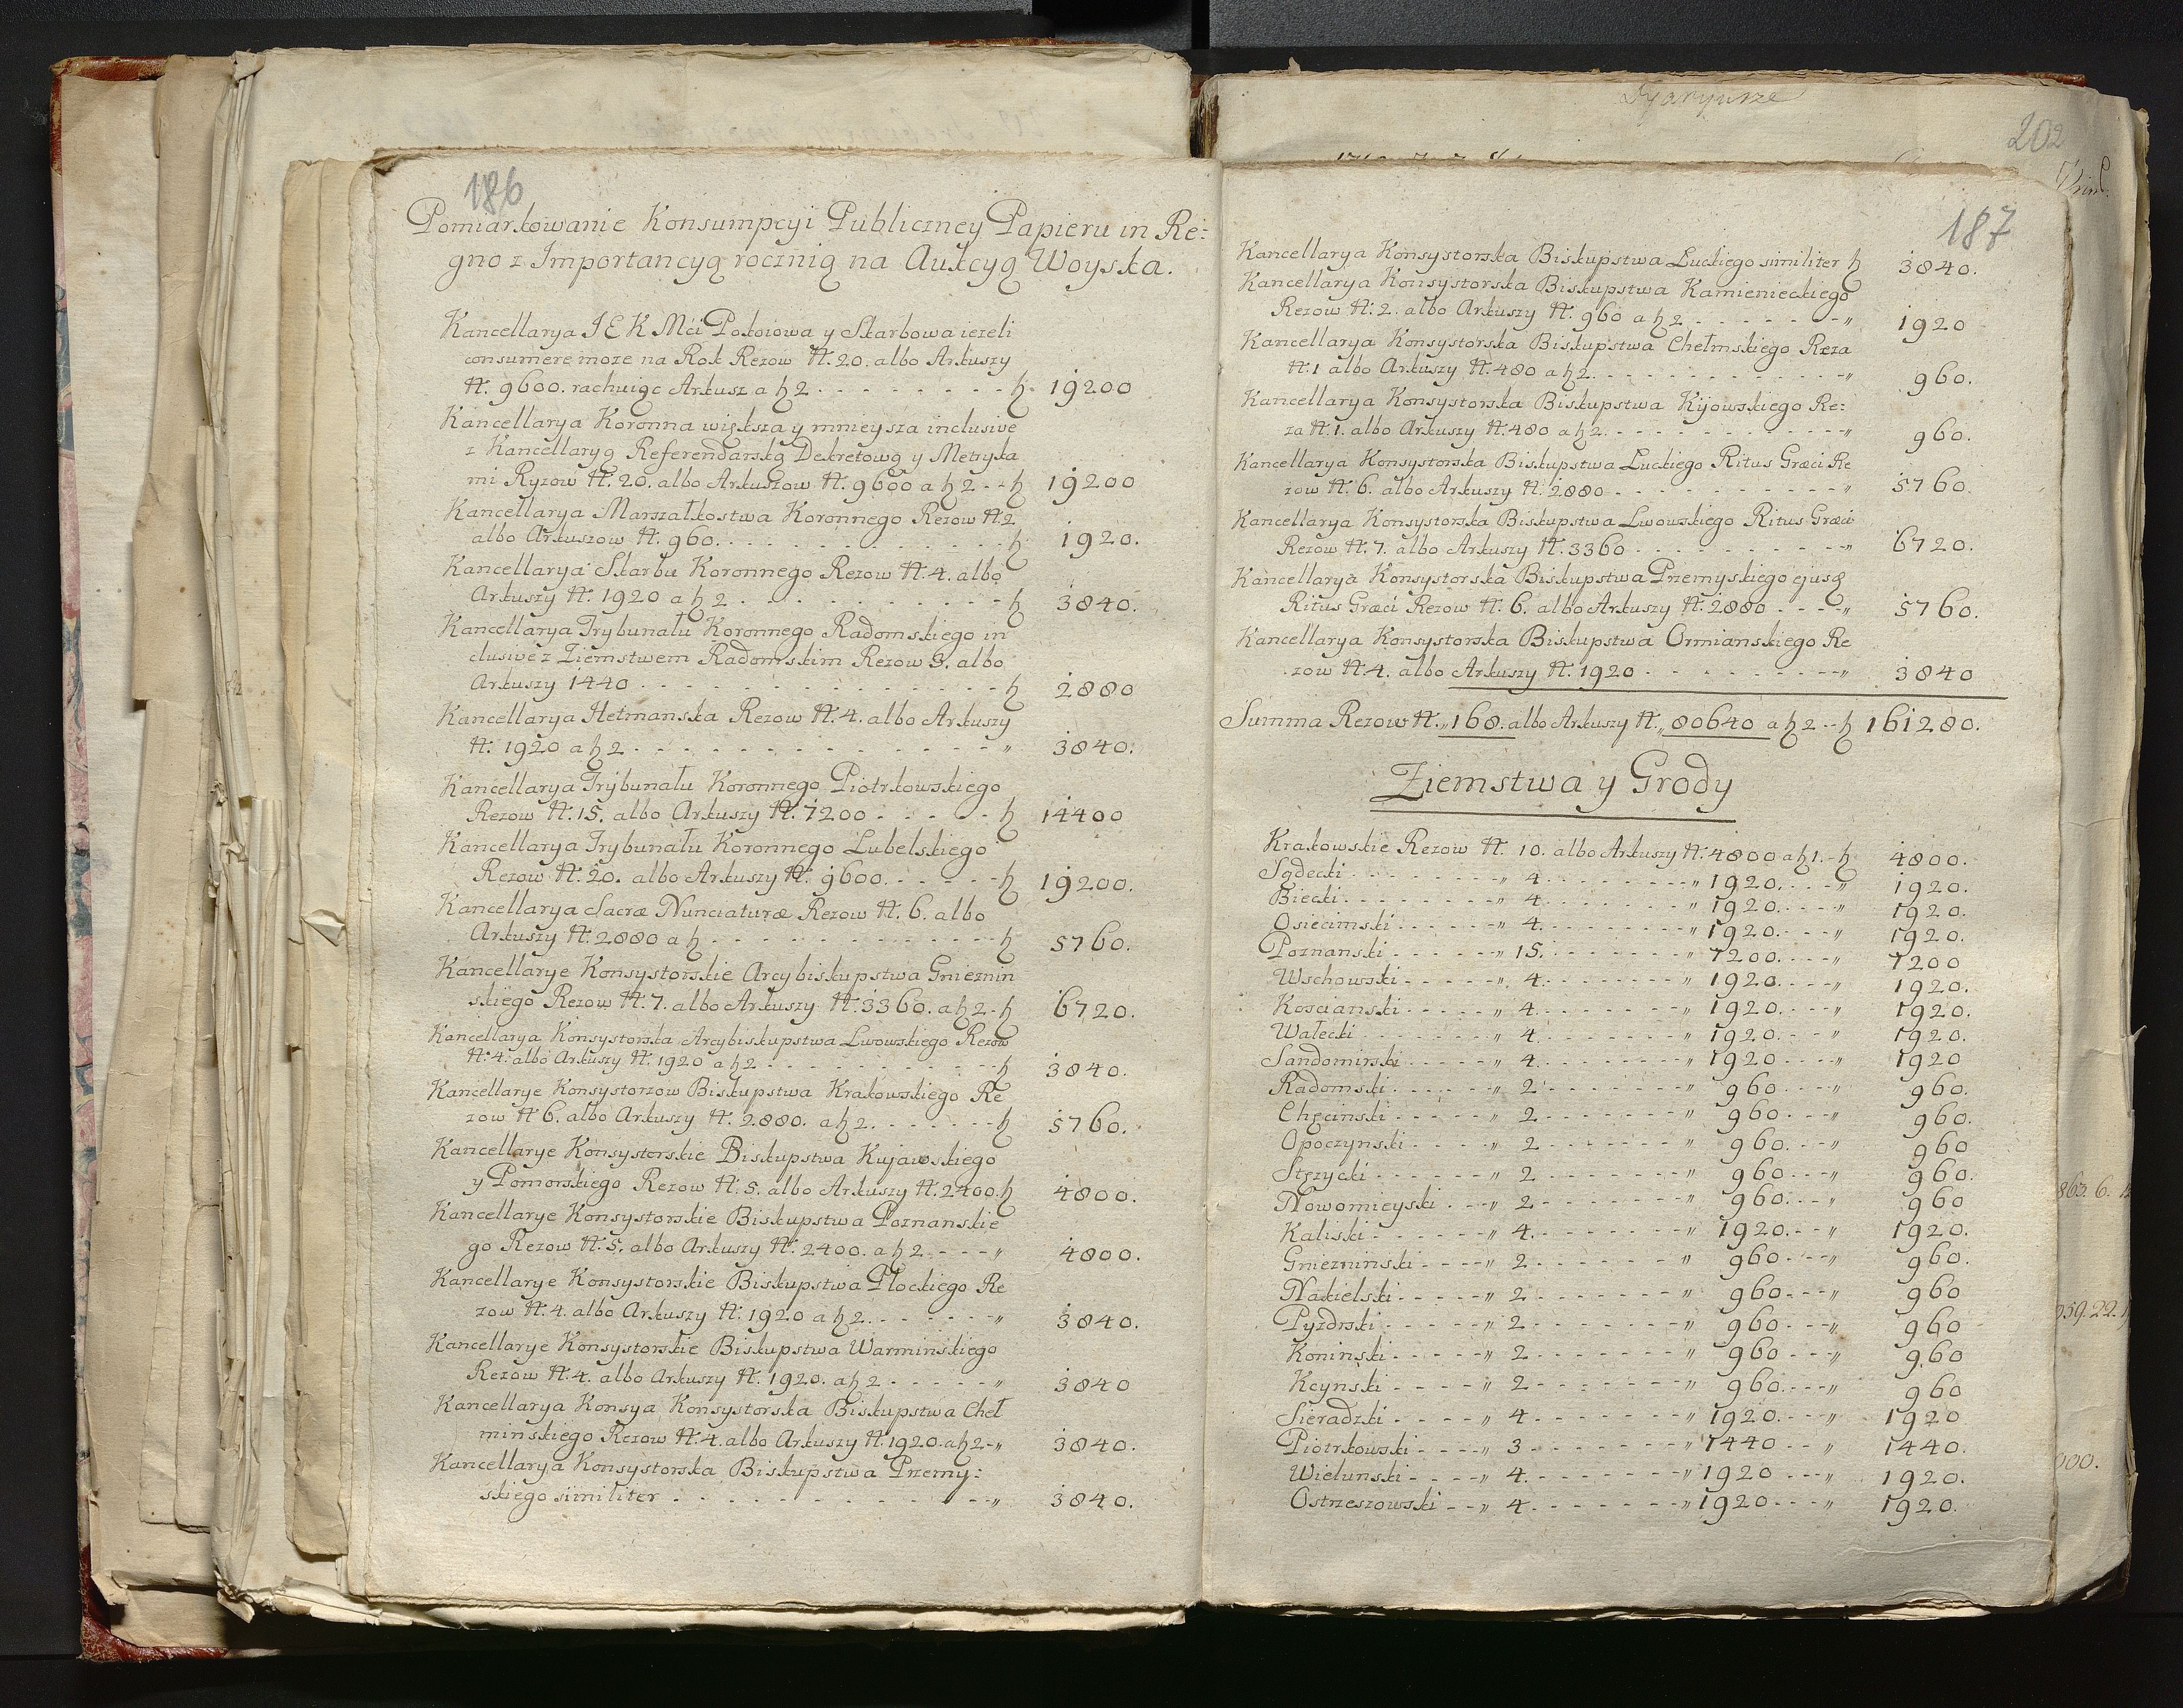 186
Pomiarkowanie Konsumpcyi Publiczney Papieru in Re:
gno z Importancyą rocznią na Aukcyą Woyska.
Kancellarya J E K Mći Pokoiowa y Skarbowa iezeli
consumere moze na Rok Rezow N. 20. albo Arkuszy
N. 9600. rachuiąc Arkusz a ƶ 2 - - - - - - - ƶ 19200
Kancellarya Koronna większa y mnieysza inclusive
z Kancellaryą Referendarską Dekretową y Metryka
mi Ryzow N. 20. albo Arkuszow N. 9600 a ƶ 2 - - ƶ 19200
Kancellarya Marszałkostwa Koronnego Rezow N. 2
albo Arkuszow N. 960. - - - - - - - - - - ƶ 1920.
Kancellarya Skarbu Koronnego Rezow N. 4. albo
Arkuszy N. 1920 a ƶ 2 - - - - - - - - - - ƶ 3840.
Kancellarya Trybunału Koronnego Radomskiego in
clusive z Ziemstwem Radomskim Rezow 3. albo
Arkuszy 1440 - - - - - - - - - - - - - ƶ 2880
Kancellarya Hetmanska Rezow N. 4. albo Arkuszy
N. 1920 a ƶ 2 - - - - - - - - - - - - - „ 3840.
Kancellarya Trybunału Koronnego Piotrkowskiego
Rezow N. 15. albo Arkuszy N. 7200 - - - - - ƶ 14400
Kancellarya Trybunału Koronnego Lubelskiego
Rezow N. 20. albo Arkuszy N. 9600. - - - - - ƶ 19200.
Kancellarya Sacræ Nunciaturæ Rezow N. 6. albo
Arkuszy N. 2880 a ƶ - - - - - - - - - - - ƶ 5760.
Kancellarye Konsystorskie Arcybiskupstwa Gnieznin
skiego Rezow N. 7. albo Arkuszy N. 3360. a ƶ 2 - ƶ 6720.
Kancellarya Konsystorska Arcybiskupstwa Lwowskiego Rezow
N. 4. albo Arkuszy N. 1920 a ƶ 2 - - - - - - - - - ƶ 3840.
Kancellarye Konsystorzow Biskupstwa Krakowskiego Re
zow N. 6. albo Arkuszy N. 2880. a ƶ 2. - - - - - - ƶ 5760.
Kancellarye Konsystorskie Biskupstwa Kujawskiego
y Pomorskiego Rezow N. 5. albo Arkuszy N. 2400. ƶ 4800.
Kancellarye Konsystorskie Biskupstwa Poznanskie
go Rezow N. 5. albo Arkuszy N. 2400. a ƶ 2 - - - „ 4800.
Kancellarye Konsystorskie Biskupstwa Płockiego Re
zow N. 4. albo Arkuszy N. 1920 a ƶ 2. - - - - - - „ 3840.
Kancellarye Konsystorskie Biskupstwa Warminskiego
Rezow N. 4. albo Arkuszy N. 1920. a ƶ 2 - - - - - „ 3840
Kancellarya Konsya Konsystorska Biskupstwa Cheł
minskiego Rezow N. 4. albo Arkuszy N. 1920. a ƶ 2 - „ 3840.
Kancellarya Konsystorska Biskupstwa Przemy:
skiego similiter - - - - - - - - - - - - - „ 3840.
Dyaryusze
202
187
Kancellarya Konsystorska Biskupstwa Luckiego similiter ƶ 3840.
Kancellarya Konsystorska Biskupstwa Kamienieckiego
Rezow N. 2. albo Arkuszy N. 960 a ƶ 2 - - - - - - - „ 1920
Kancellarya Konsystorska Biskupstwa Chełmskiego Reza
N. 1 albo Arkuszy N. 480 a ƶ 2. - - - - - - - - - - - „ 960.
Kancellarya Konsystorska Biskupstwa Kijowskiego Re:
za N. 1. albo Arkuszy N. 480 a ƶ 2. - - - - - - - - - - „ 960.
Kancellarya Konsystorska Biskupstwa Luckiego Ritus Græci Re
zow N. 6. albo Arkuszy N. 2880 - - - - - - - - - - „ 5760.
Kancellarya Konsystorska Biskupstwa Lwowskiego Ritus Græci
Rezow N. 7. albo Arkuszy N. 3360 - - - - - - - - - - „ 6720.
Kancellarya Konsystorska Biskupstwa Przemyskiego ejusq
Ritus Græci Rezow N. 6. albo Arkuszy N. 2880 - - - - „ 5760.
Kancellarya Konsystorska Biskupstwa Ormianskiego Re
zow N. 4. albo Arkuszy N. 1920 - - - - - - - - - - „ 3840
Summa Rezow N. „168. albo Arkuszy N. „80640 a ƶ 2 - - ƶ 161280.
Ziemstwa y Grody
Krakowskie Rezow N. 10. albo Arkuszy N. 4800 a ƶ 1. - ƶ 4800.
Sądecki - - - - - - - „ 4. - - - - - - „ 1920. - - - „ 1920.
Biecki. - - - - - - - „ 4. - - - - - - „ 1920. - - - „ 1920.
Osiecimski - - - - - „ 4. - - - - - - „ 1920. - - - „ 1920.
Poznanski - - - - - „ 15. - - - - - - „ 7200. - - - „ 7200
Wschowski - - - - - „ 4. - - - - - - „ 1920. - - - „ 1920.
Koscianski - - - - - „ 4. - - - - - - „ 1920. - - - „ 1920.
Wałecki - - - - - - „ 4. - - - - - - „ 1920. - - - „ 1920.
Sandomirski - - - - - „ 4. - - - - - - „ 1920 - - - „ 1920
Radomski - - - - - - „ 2 - - - - - - - „ 960 - - - „ 960.
Chęcinski - - - - - „ 2 - - - - - - - „ 960 - - - „ 960.
Opoczynski - - - - - „ 2 - - - - - - - „ 960. - - „ 960
Stęzycki - - - - - - „ 2 - - - - - - - „ 960 - - - „ 960.
Nowomieyski - - - „ 2 - - - - - - - „ 960. - - „ 960
Kaliski - - - - - - - „ 4. - - - - - - „ 1920. - - „ 1920.
Gniezninski - - - - „ 2 - - - - - - „ 960 - - - „ 960.
Nakielski - - - - - „ 2 - - - - - - - „ 960 - - - „ 960
Pyzdrski - - - - - - „ 2 - - - - - - - „ 960 - - - „ 960
Koninski - - - - - „ 2 - - - - - - - „ 960 - - - „ 960
Kcynski - - - - - „ 2 - - - - - - - „ 960. - - - „ 960
Sieradzki - - - - - „ 4. - - - - - - „ 1920. - - - „ 1920
Piotrkowski - - - - „ 3 - - - - - - - „ 1440 - - „ 1440.
Wielunski - - - - „ 4. - - - - - - - „ 1920 - - - „ 1920.
Ostrzeszowski - - „ 4. - - - - - - - „ 1920 - - - „ 1920.